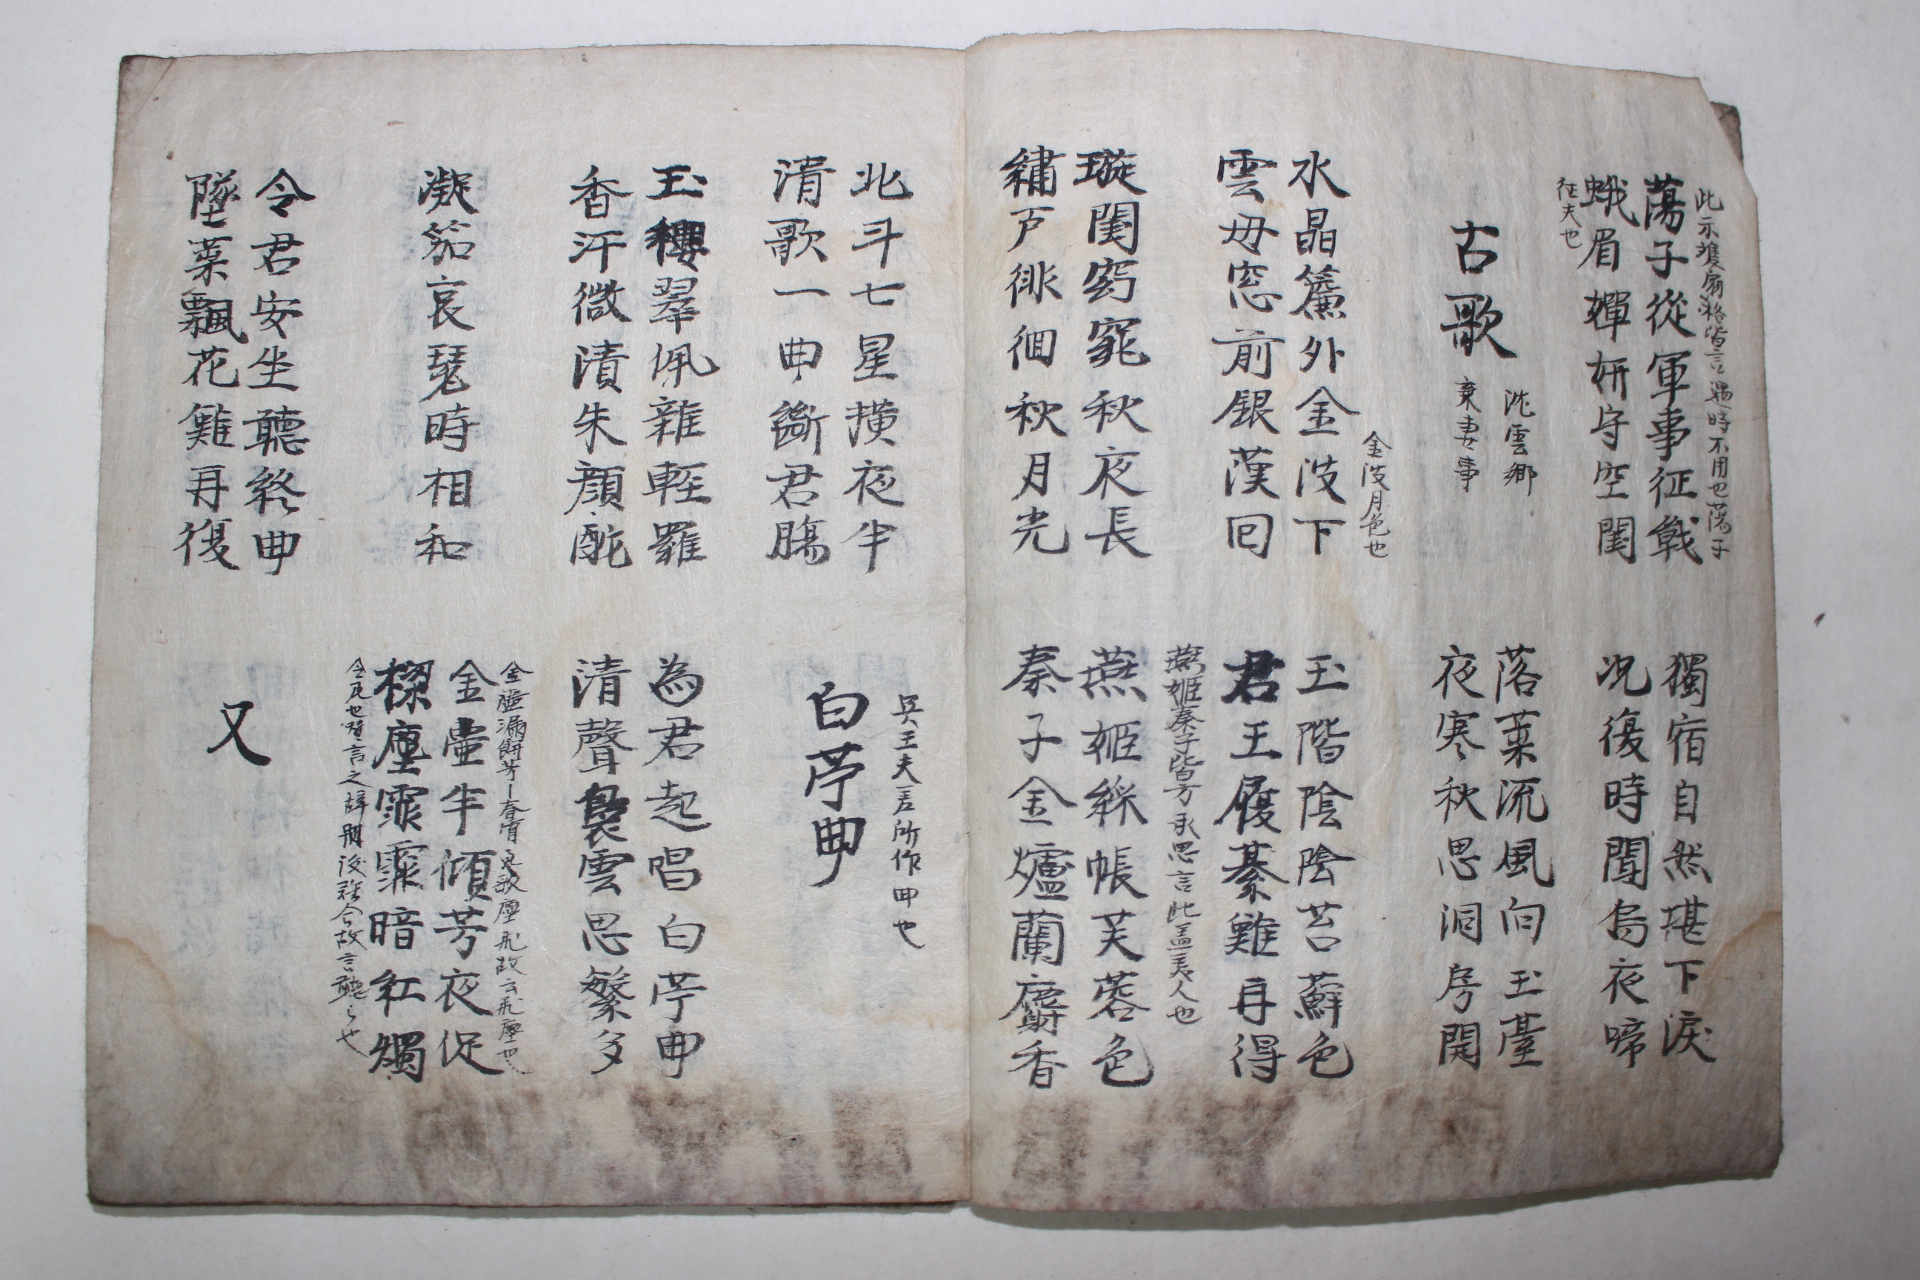 此示雙扇 皆言過時不用也蕩子
蕩子從軍事征戰
蛾眉嬋妍守空閨
征夫也
獨宿自然堪下淚
況復時聞烏夜啼
古歌
沈雲卿
棄妻事
落葉流風向玉臺
夜寒秋思洞房開
金波月色也
水晶簾外金波下
雲母窓前銀漢回
玉階陰陰苔蘚色
君王履綦難再得
璇閨窈窕秋夜長
繡戶徘徊秋月光
燕姬秦子皆方承恩言此盖美人也
燕姬綵帳芙蓉色
秦子金爐蘭麝香
北斗七星横夜半
清歌一曲斷君膓
吳王夫差所作曲也
白苧曲
玉纓翠佩雜輕羅
香汗微漬朱顔酡
為君起唱白苧曲
清聲裊雲思繁多
凝笳哀琴時相和
金壺漏 芳 春宵 歌塵飛故云飛塵也
金壺半傾芳夜促
樑塵霏霏暗紅燭
言之 故言聽之也
令君安坐聽終曲
墜葉飄花難再復
又